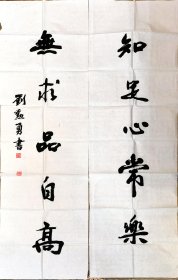 知足心常樂
無求品自高
劉孟勇書